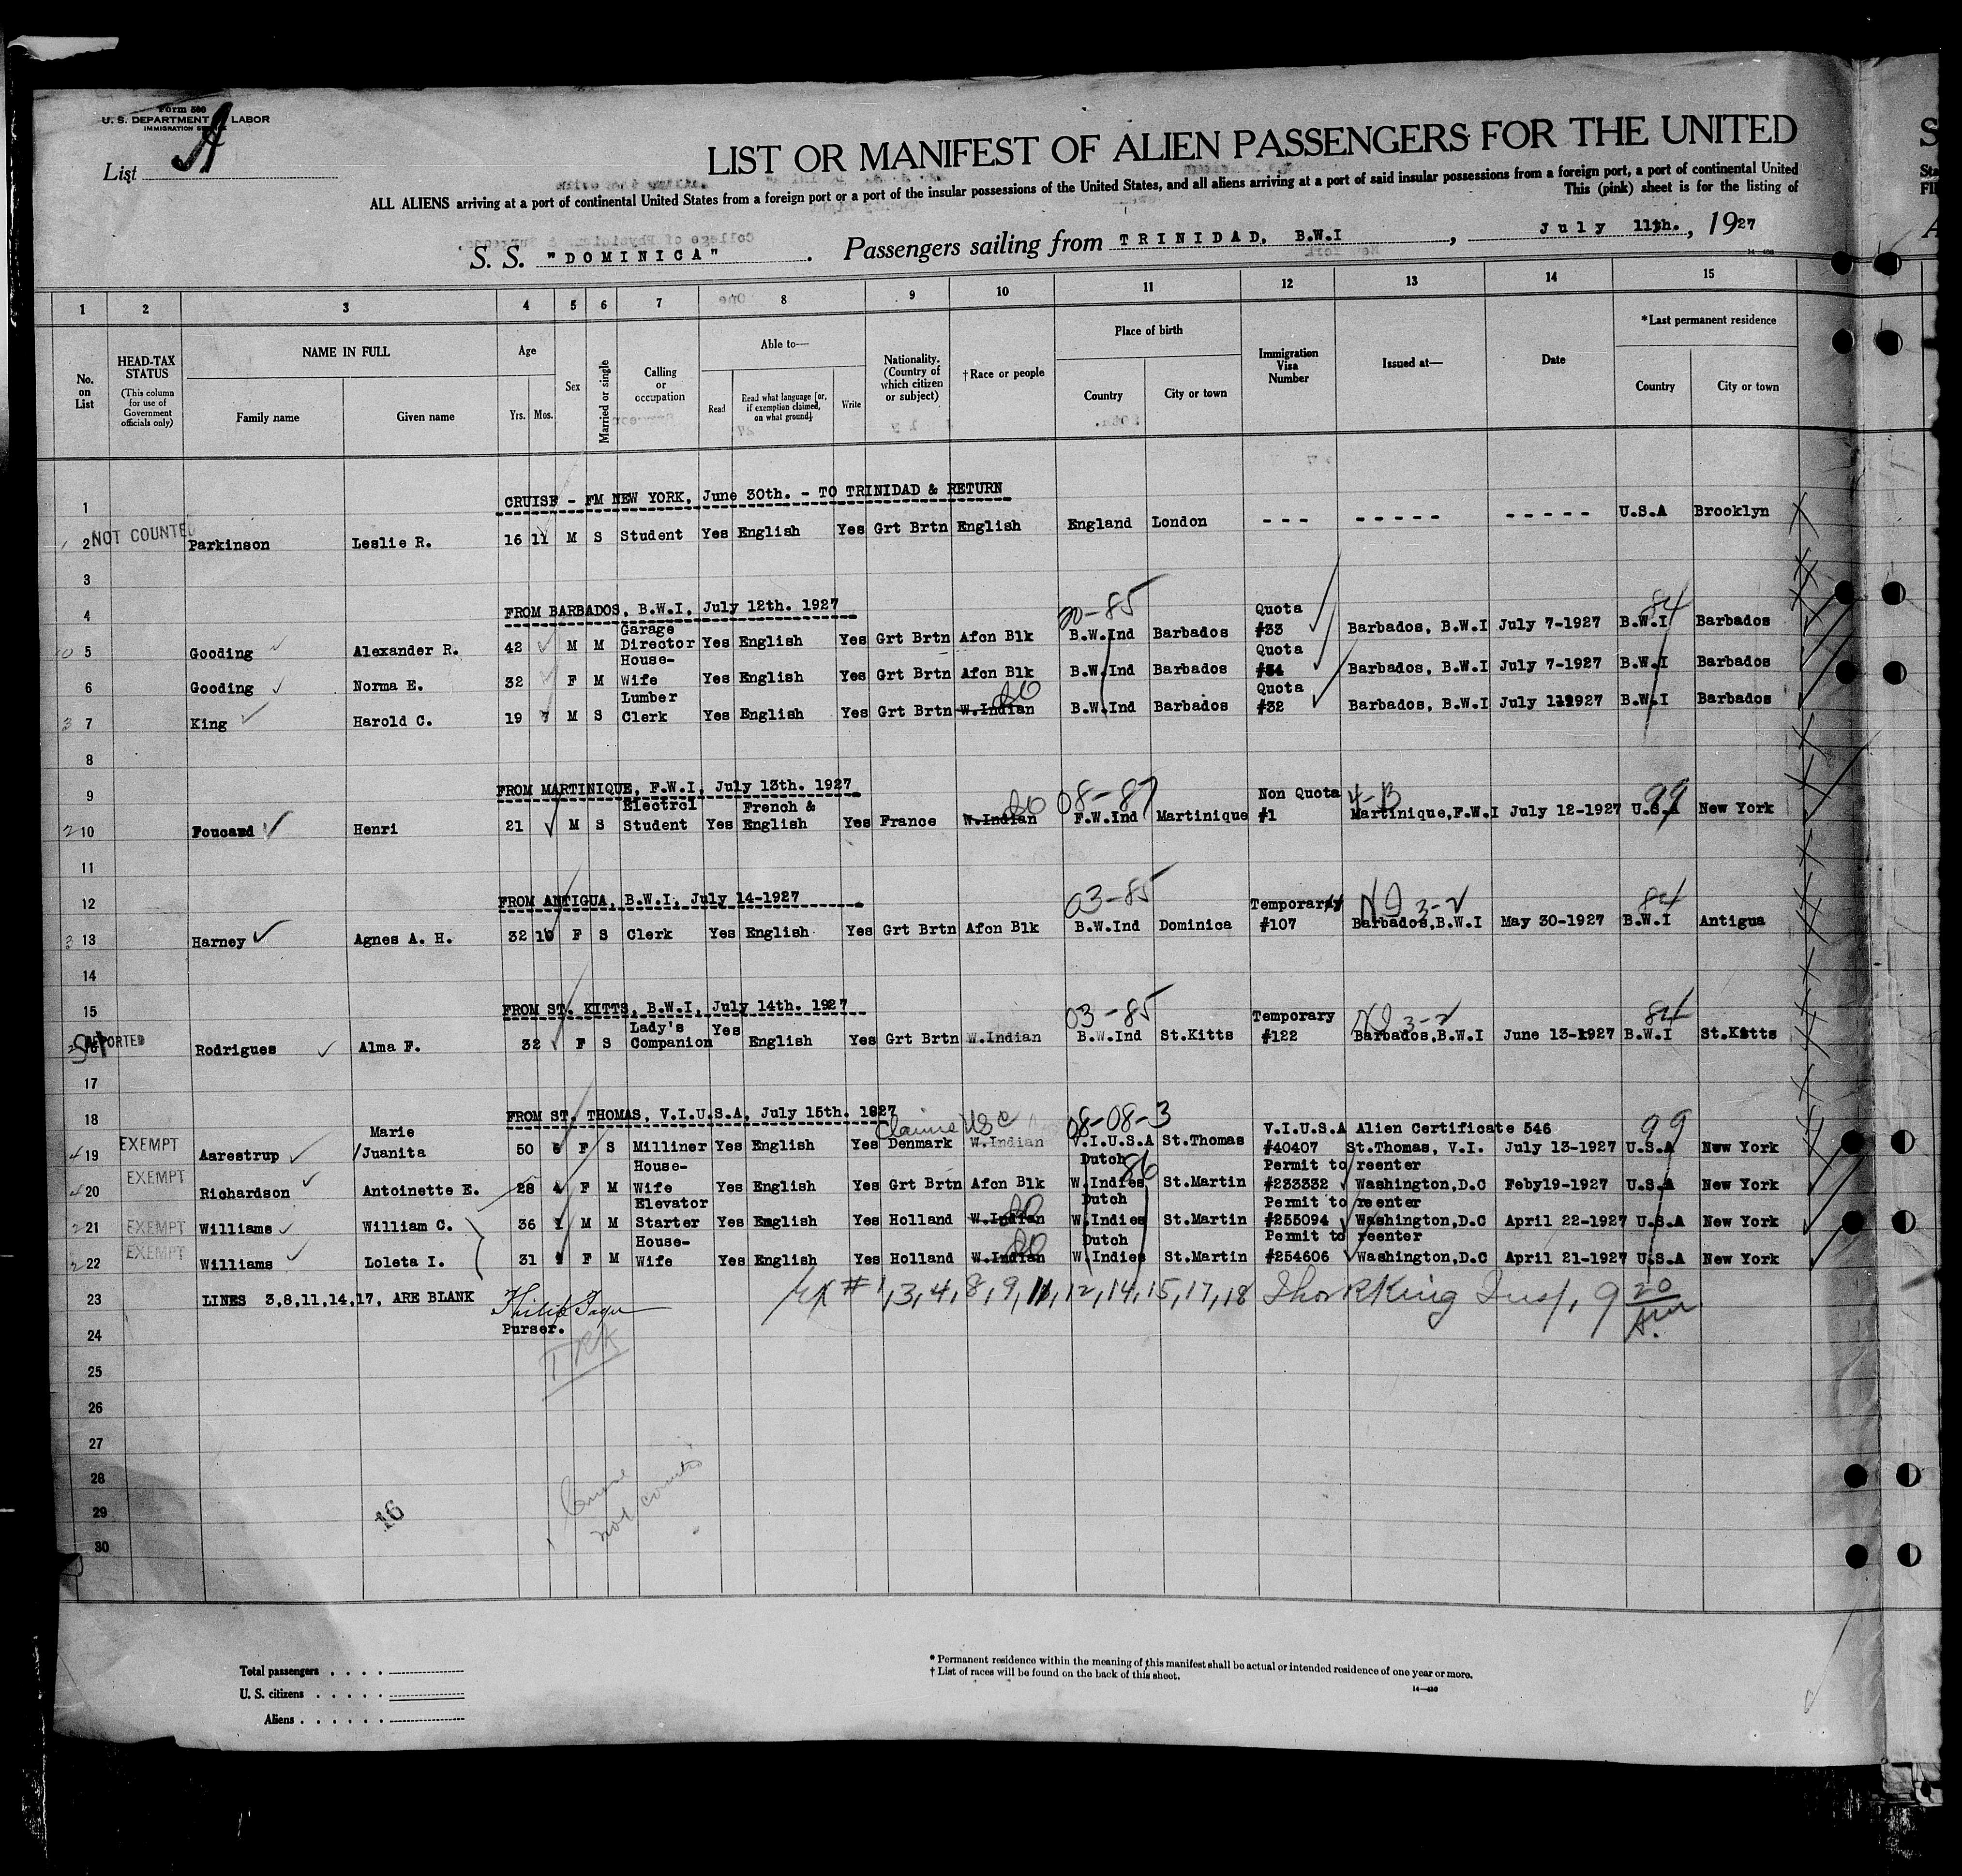 Form 500
U. S. DEPARTMENT LABOR
IMMIGRATION
List A
LIST OR MANIFEST OF ALIEN PASSENGERS FOR THE UNITED
ALL ALIENS arriving at a port of continental United States from a foreign port or a port of the insular possessions of the United States, and all aliens arriving at a port of said insular possessions from a foreign port, a port of continental United
This (pink) sheet is for the listing of
S. S. "DOMINICA". Passengers sailing from TRINIDAD, B.W.I, July 11th., 1927
1 2 3 4 5 6 7 8 9 10 11 12 13 14 15
No. on List
HEAD-TAX STATUS (This column for use of Government officials only)
NAME IN FULL Family name Given name
Age Yrs. Mos.
Sex
Married or single
Calling or occupation
Able to— Read Read what language [or, if exemption claimed, on what ground] Write
Nationality. (Country of which citizen or subject)
†Race or people
Place of birth Country City or town
Immigration Visa Number
Issued at—
Date
*Last permanent residence Country City or town
1 CRUISE - FM NEW YORK, June 30th. - TO TRINIDAD & RETURN
2 NOT COUNTED Parkinson Leslie R. 16 11 M S Student Yes English Yes Grt Brtn English England London --- ----- ----- U.S.A Brooklyn
3
4 FROM BARBADOS, B.W.I, July 12th. 1927 20-85 84
5 Gooding Alexander R. 42 M M Garage Director Yes English Yes Grt Brtn Afcn Blk B.W.Ind Barbados Quota #33 Barbados, B.W.I July 7-1927 B.W.I Barbados
6 Gooding Norma E. 32 F M House-Wife Yes English Yes Grt Brtn Afcn Blk B.W.Ind Barbados Quota #34 Barbados, B.W.I July 7-1927 B.W.I Barbados
7 King Harold C. 19 7 M S Lumber Clerk Yes English Yes Grt Brtn W.Indian B.W.Ind Barbados Quota #32 Barbados, B.W.I July 1927 B.W.I Barbados
8
9 FROM MARTINIQUE, F.W.I, July 13th. 1927 08-87 4-B 99
10 Foucand Henri 21 M S Electrcl Student Yes French & English Yes France W.Indian F.W.Ind Martinique Non Quota #1 Martinique,F.W.I July 12-1927 U.S.A New York
11
12 FROM ANTIGUA, B.W.I, July 14-1927 03-85 3-2 84
13 Harney Agnes A. H. 32 10 F S Clerk Yes English Yes Grt Brtn Afcn Blk B.W.Ind Dominica Temporary #107 Barbados,B.W.I May 30-1927 B.W.I Antigua
14
15 FROM ST. KITTS, B.W.I, July 14th. 1927 03-85 3-2 84
16 Rodrigues Alma F. 32 F S Lady's Companion Yes English Yes Grt Brtn W.Indian B.W.Ind St.Kitts Temporary #122 Barbados,B.W.I June 13-1927 B.W.I St.Kitts
17
18 FROM ST. THOMAS, V.I.U.S.A, July 15th. 1927 Claims USC 08-08-3 99
19 EXEMPT Aarestrup Marie Juanita 50 6 F S Milliner Yes English Yes Denmark W.Indian V.I.U.S.A St.Thomas V.I.U.S.A Alien Certificate 546 #40407 St.Thomas, V.I. July 13-1927 U.S.A New York
20 EXEMPT Richardson Antoinette E. 28 4 F M House-Wife Yes English Yes Grt Brtn Afcn Blk Dutch W.Indies 86 St.Martin Permit to reenter #233332 Washington,D.C Feby19-1927 U.S.A New York
21 EXEMPT Williams William C. 36 1 M M Elevator Starter Yes English Yes Holland W.Indian Dutch W.Indies St.Martin Permit to reenter #255094 Washington,D.C April 22-1927 U.S.A New York
22 EXEMPT Williams Loleta I. 31 F M House-Wife Yes English Yes Holland W.Indian Dutch W.Indies St.Martin Permit to reenter #254606 Washington,D.C April 21-1927 U.S.A New York
23 LINES 3,8,11,14,17, ARE BLANK # 1,3,4,8,9,11,12,14,15,17,18
Purser.
24
25
26
27
28
29
30
Cruise
not counted
16
Total passengers
U. S. citizens
Aliens
* Permanent residence within the meaning of this manifest shall be actual or intended residence of one year or more.
† List of races will be found on the back of this sheet.
14—430